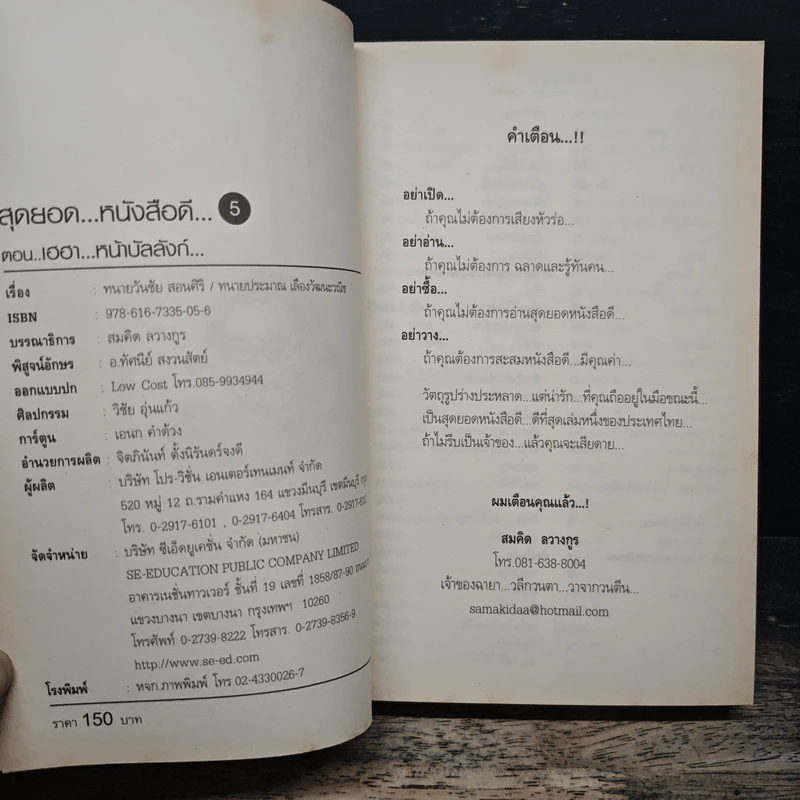 สุดยอด...หนังสือดี... 5
ตอน..เฮฮา...หน้าบัลลังก์...
เรื่อง : ทนายวันชัย สอนศิริ / ทนายประมาณ เลืองวัฒนะวณิช
ISBN : 978-616-7335-05-6
บรรณาธิการ : สมคิด ลวางกูร
พิสูจน์อักษร : อ.ทัศนีย์ สงวนสัตย์
ออกแบบปก : Low Cost โทร.085-9934944
ศิลปกรรม : วิชัย อุ่นแก้ว
การ์ตูน : เอนก คำด้วง
อำนวยการผลิต : จิตภินันท์ ตั้งนิรันดร์จงดี
ผู้ผลิต : บริษัท โปร-วิชั่น เอนเตอร์เทนเมนท์ จำกัด
520 หมู่ 12 ถ.รามคำแหง 164 แขวงมีนบุรี เขตมีนบุรี
โทร. 0-2917-6101 , 0-2917-6404 โทรสาร.
จัดจำหน่าย : บริษัท ซีเอ็ดยูเคชั่น จำกัด (มหาชน)
SE-EDUCATION PUBLIC COMPANY LIMITED
อาคารเนชั่นทาวเวอร์ ชั้นที่ 19 เลขที่ 1858/87-90
แขวงบางนา เขตบางนา กรุงเทพฯ 10260
โทรศัพท์ 0-2739-8222 โทรสาร. 0-2739-8356-9
http://www.se-ed.com
โรงพิมพ์ : หจก.ภาพพิมพ์ โทร.02-4330026-7
ราคา 150 บาท
คำเตือน...!!
อย่าเปิด...
ถ้าคุณไม่ต้องการเสียงหัวร่อ...
อย่าอ่าน...
ถ้าคุณไม่ต้องการ ฉลาดและรู้ทันคน...
อย่าซื้อ...
ถ้าคุณไม่ต้องการอ่านสุดยอดหนังสือดี...
อย่าวาง...
ถ้าคุณต้องการสะสมหนังสือดี...มีคุณค่า...
วัตถุรูปร่างประหลาด...แต่น่ารัก...ที่คุณถืออยู่ในมือขณะนี้...
เป็นสุดยอดหนังสือดี...ดีที่สุดเล่มหนึ่งของประเทศไทย...
ถ้าไม่รีบเป็นเจ้าของ...แล้วคุณจะเสียดาย...
ผมเตือนคุณแล้ว...!
สมคิด ลวางกูร
โทร.081-638-8004
เจ้าของฉายา...วลีกวนตา...วาจากวนตีน...
samakidaa@hotmail.com